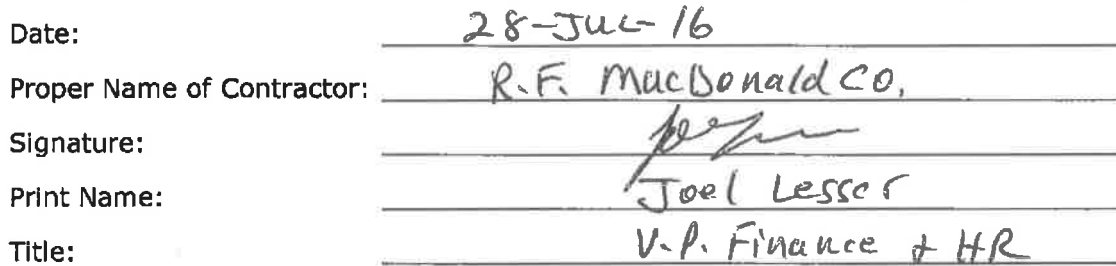 Date: 28-JUL-16
Proper Name of Contractor: R.F. MacDonald CO.
Signature:
Print Name: Joel Lesser
Title: V.P. Finance & HR